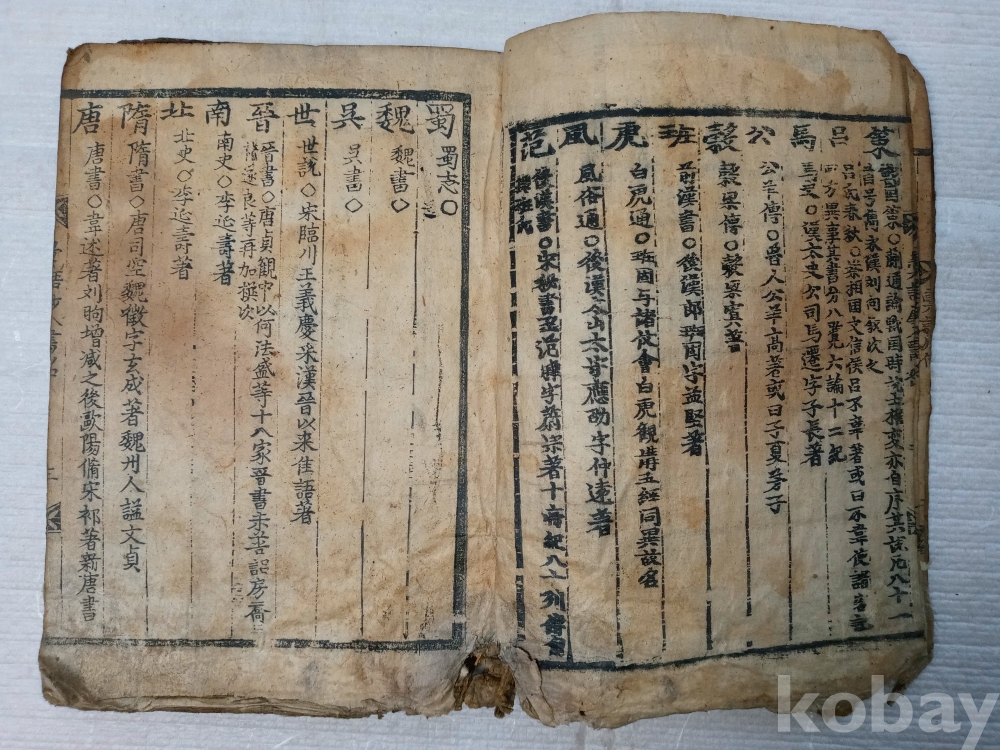 策 戰國策○蒯通論戰國時說士權変亦自序其說凡八十一
首号雋永漢刘向叙次之
呂 呂氏春秋○秦相国文信侯呂不韋著或曰不韋使諸客
方異事其書分八覽六論十二紀
馬 馬史○漢太史公司馬遷字子長著
公 公羊傳○魯人公羊高著或曰子夏弟子
穀 穀梁傳○穀梁
班 前漢書○後漢郎班固字孟堅著
虎 白虎通○班固与諸仗會白虎觀講五経同異故名
風 風俗通○後漢令山太守應劭字仲遠著
范 後漢書○宋秘書丞范曄字蔚宗著十帝紀八十列傳
蜀 蜀志○
魏 魏書○
吳 吳書○
世 世説○宋臨川王義慶采漢晉以来佳語著
晉 晉書○唐貞觀中以何法盛等十八家晉書未善詔房喬
遂良等再加撰次
南 南史○李延壽著
北 北史○李延壽著
隋 隋書○唐司空魏徵字玄成著魏州人諡文貞
唐 唐書○韋述著刘昫增减之後歐陽脩宋祁著新唐書
kobay